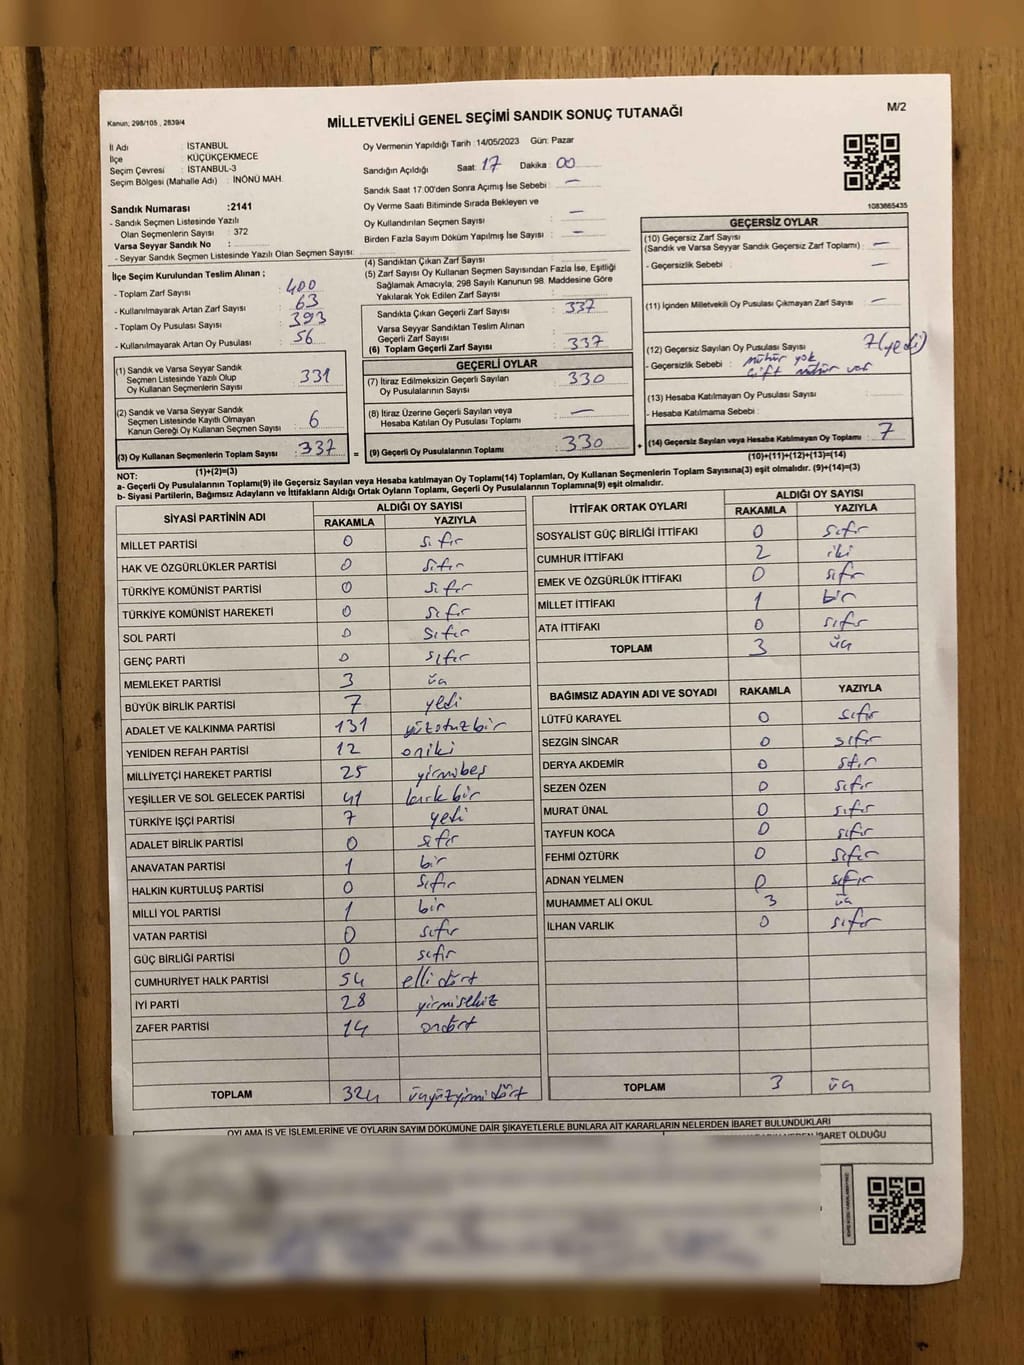 Kanun; 298/105 , 2839/4
MİLLETVEKİLİ GENEL SEÇİMİ SANDIK SONUÇ TUTANAĞI
M/2
İl Adı : İSTANBUL
İlçe : KÜÇÜKÇEKMECE
Seçim Çevresi : İSTANBUL-3
Seçim Bölgesi (Mahalle Adı) : İNÖNÜ MAH.
Sandık Numarası :2141
- Sandık Seçmen Listesinde Yazılı
Olan Seçmenlerin Sayısı : 372
Varsa Seyyar Sandık No :
- Seyyar Sandık Seçmen Listesinde Yazılı Olan Seçmen Sayısı:
Oy Vermenin Yapıldığı Tarih :14/05/2023 Gün: Pazar
Sandığın Açıldığı Saat: 17 Dakika : 00
Sandık Saat 17:00'den Sonra Açımış İse Sebebi : —
Oy Verme Saati Bitiminde Sırada Bekleyen ve
Oy Kullandırılan Seçmen Sayısı : —
Birden Fazla Sayım Döküm Yapılmış İse Sayısı : —
1083665435
İlçe Seçim Kurulundan Teslim Alınan ;
- Toplam Zarf Sayısı : 400
- Kullanılmayarak Artan Zarf Sayısı : 63
- Toplam Oy Pusulası Sayısı : 393
- Kullanılmayarak Artan Oy Pusulası : 56
(1) Sandık ve Varsa Seyyar Sandık
Seçmen Listesinde Yazılı Olup
Oy Kullanan Seçmenlerin Sayısı : 331
(2) Sandık ve Varsa Seyyar Sandık
Seçmen Listesinde Kayıtlı Olmayan
Kanun Gereği Oy Kullanan Seçmen Sayısı : 6
(3) Oy Kullanan Seçmenlerin Toplam Sayısı : 337
(1)+(2)=(3)
(4) Sandıktan Çıkan Zarf Sayısı :
(5) Zarf Sayısı Oy Kullanan Seçmen Sayısından Fazla İse, Eşitliği
Sağlamak Amacıyla, 298 Sayılı Kanunun 98. Maddesine Göre
Yakılarak Yok Edilen Zarf Sayısı :
Sandıkta Çıkan Geçerli Zarf Sayısı : 337
Varsa Seyyar Sandıktan Teslim Alınan
Geçerli Zarf Sayısı :
(6) Toplam Geçerli Zarf Sayısı : 337
GEÇERLİ OYLAR
(7) İtiraz Edilmeksizin Geçerli Sayılan
Oy Pusulalarının Sayısı : 330
(8) İtiraz Üzerine Geçerli Sayılan veya
Hesaba Katılan Oy Pusulası Toplamı : —
= (9) Geçerli Oy Pusulalarının Toplamı : 330
GEÇERSİZ OYLAR
(10) Geçersiz Zarf Sayısı
(Sandık ve Varsa Seyyar Sandık Geçersiz Zarf Toplamı) : —
- Geçersizlik Sebebi : —
(11) İçinden Milletvekili Oy Pusulası Çıkmayan Zarf Sayısı : —
(12) Geçersiz Sayılan Oy Pusulası Sayısı : 7(yedi)
- Geçersizlik Sebebi : mühür yok
çift mühür var
(13) Hesaba Katılmayan Oy Pusulası Sayısı :
- Hesaba Katılmama Sebebi :
+ (14) Geçersiz Sayılan veya Hesaba Katılmayan Oy Toplamı : 7
(10)+(11)+(12)+(13)=(14)
NOT:
a- Geçerli Oy Pusulalarının Toplamı(9) ile Geçersiz Sayılan veya Hesaba katılmayan Oy Toplamı(14) Toplamları, Oy Kullanan Seçmenlerin Toplam Sayısına(3) eşit olmalıdır. (9)+(14)=(3)
b- Siyasi Partilerin, Bağımsız Adayların ve İttifakların Aldığı Ortak Oyların Toplamı, Geçerli Oy Pusulalarının Toplamına(9) eşit olmalıdır.
SİYASİ PARTİNİN ADI ALDIĞI OY SAYISI
RAKAMLA YAZIYLA
MİLLET PARTİSİ 0 sıfır
HAK VE ÖZGÜRLÜKLER PARTİSİ 0 sıfır
TÜRKİYE KOMÜNİST PARTİSİ 0 sıfır
TÜRKİYE KOMÜNİST HAREKETİ 0 sıfır
SOL PARTİ 0 sıfır
GENÇ PARTİ 0 sıfır
MEMLEKET PARTİSİ 3 üç
BÜYÜK BİRLİK PARTİSİ 7 yedi
ADALET VE KALKINMA PARTİSİ 131 yüzotuzbir
YENİDEN REFAH PARTİSİ 12 oniki
MİLLİYETÇİ HAREKET PARTİSİ 25 yirmibeş
YEŞİLLER VE SOL GELECEK PARTİSİ 41 kırkbir
TÜRKİYE İŞÇİ PARTİSİ 7 yedi
ADALET BİRLİK PARTİSİ 0 sıfır
ANAVATAN PARTİSİ 1 bir
HALKIN KURTULUŞ PARTİSİ 0 sıfır
MİLLİ YOL PARTİSİ 1 bir
VATAN PARTİSİ 0 sıfır
GÜÇ BİRLİĞİ PARTİSİ 0 sıfır
CUMHURİYET HALK PARTİSİ 54 elli dört
İYİ PARTİ 28 yirmisekiz
ZAFER PARTİSİ 14 ondört
TOPLAM 324 üçyüzyirmidört
İTTİFAK ORTAK OYLARI ALDIĞI OY SAYISI
RAKAMLA YAZIYLA
SOSYALİST GÜÇ BİRLİĞİ İTTİFAKI 0 sıfır
CUMHUR İTTİFAKI 2 iki
EMEK VE ÖZGÜRLÜK İTTİFAKI 0 sıfır
MİLLET İTTİFAKI 1 bir
ATA İTTİFAKI 0 sıfır
TOPLAM 3 üç
BAĞIMSIZ ADAYIN ADI VE SOYADI RAKAMLA YAZIYLA
LÜTFÜ KARAYEL 0 sıfır
SEZGİN SİNCAR 0 sıfır
DERYA AKDEMİR 0 sıfır
SEZEN ÖZEN 0 sıfır
MURAT ÜNAL 0 sıfır
TAYFUN KOCA 0 sıfır
FEHMİ ÖZTÜRK 0 sıfır
ADNAN YELMEN 0 sıfır
MUHAMMET ALİ OKUL 3 üç
İLHAN VARLIK 0 sıfır
TOPLAM 3 üç
OYLAMA İŞ VE İŞLEMLERİNE VE OYLARIN SAYIM DÖKÜMÜNE DAİR ŞİKAYETLERLE BUNLARA AİT KARARLARIN NELERDEN İBARET BULUNDUKLARI
İBARET OLDUĞU